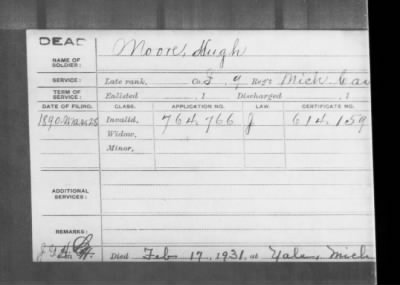 DEAD
NAME OF SOLDIER: Moore, Hugh
SERVICE: Late rank, Co. 9 Reg't Mich Cav
TERM OF SERVICE: Enlisted , 1 Discharged , 1
DATE OF FILING. CLASS. APPLICATION NO. LAW. CERTIFICATE NO.
1890 Mar 25 Invalid, 764,766 J 614,159
Widow,
Minor,
ADDITIONAL SERVICES:
REMARKS:
Died Feb 17, 1931, at Yale, Mich